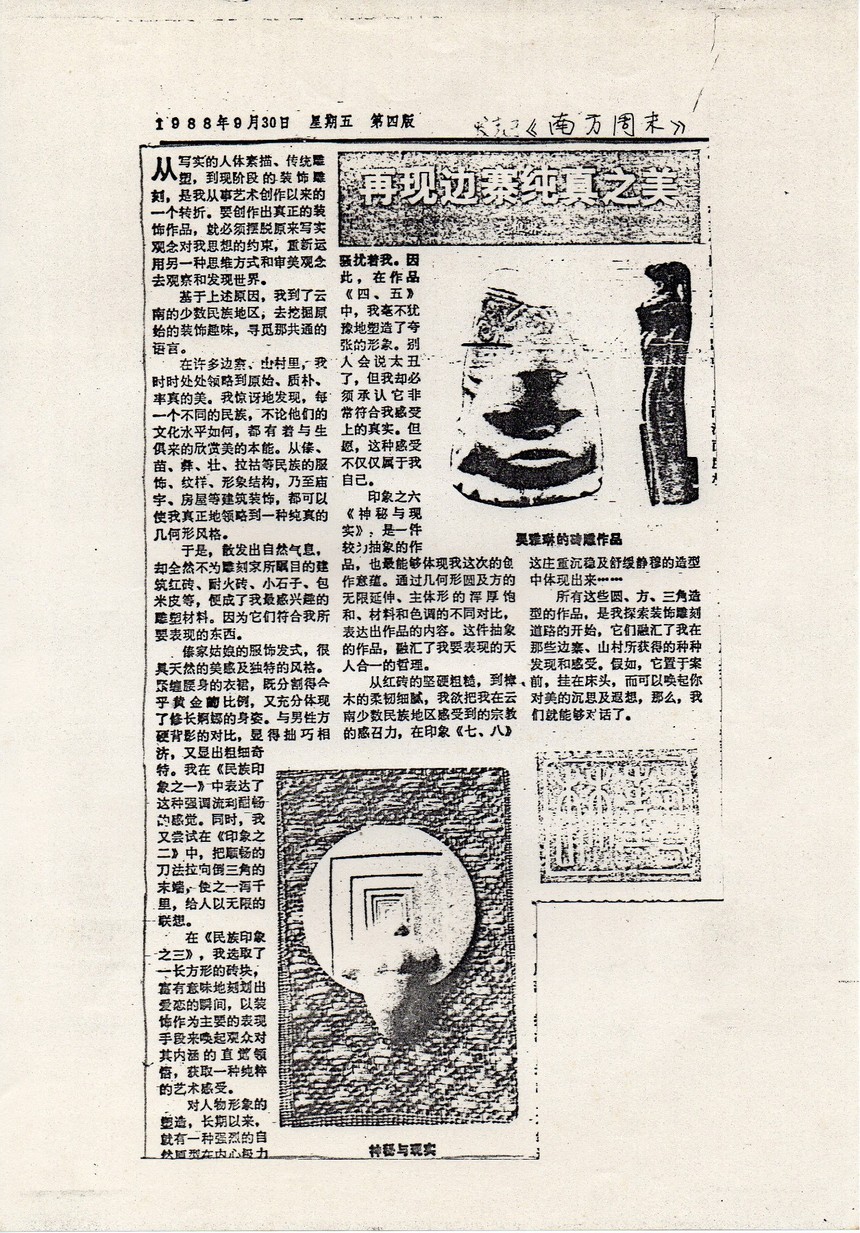 1988年9月30日 星期五 第四版
《南方周末》
再现边寨纯真之美
从写实的人体素描、传统雕
塑,到现阶段的装饰雕
刻,是我从事艺术创作以来的
一个转折。要创作出真正的装
饰作品,就必须摆脱原来写实
观念对我思想的约束,重新运
用另一种思维方式和审美观念
去观察和发现世界。
基于上述原因,我到了云
南的少数民族地区,去挖掘原
始的装饰趣味,寻觅那共通的
语言。
在许多边寨、山村里,我
时时处处领略到原始、质朴、
率真的美。我惊讶地发现,每
一个不同的民族,不论他们的
文化水平如何,都有着与生
俱来的欣赏美的本能。从傣、
苗、彝、壮、拉祜等民族的服
饰、纹样、形象结构,乃至庙
宇、房屋等建筑装饰,都可以
使我真正地领略到一种纯真的
几何形风格。
于是,散发出自然气息,
却全然不为雕刻家所瞩目的建
筑红砖、耐火砖、小石子、包
米皮等,便成了我最感兴趣的
雕塑材料。因为它们符合我所
要表现的东西。
傣家姑娘的服饰发式,很
具天然的美感及独特的风格。
紧缠腰身的衣裙,既分割得合
乎黄金律比例,又充分体现
了修长婀娜的身姿。与男性方
硬背影的对比,显得拙巧相
济,又显出粗细奇
特。我在《民族印
象之一》中表达了
这种强调流利酣畅
的感觉。同时,我
又尝试在《印象之
二》中,把顺畅的
刀法拉向倒三角的
末端,使之一泻千
里,给人以无限的
联想。
在《民族印象
之三》,我选取了
一长方形的砖块,
富有意味地刻划出
爱恋的瞬间,以装
饰作为主要的表现
手段来唤起观众对
其内涵的直觉领
悟,获取一种纯粹
的艺术感受。
对人物形象的
塑造,长期以来,
就有一种强烈的自
然原型在内心极力
骚扰着我。因
此,在作品
《四、五》
中,我毫不犹
豫地塑造了夸
张的形象。别
人会说太丑
了,但我却必
须承认它非
常符合我感受
上的真实。但
愿,这种感受
不仅仅属于我
自己。
印象之六
《神秘与现
实》,是一件
较为抽象的作
品,也最能够体现我这次的创
作意蕴。通过几何形圆及方的
无限延伸、主体形的浑厚饱
和、材料和色调的不同对比,
表达出作品的内容。这件抽象
的作品,融汇了我要表现的天
人合一的哲理。
从红砖的坚硬粗糙,到樟
木的柔韧细腻,我欲把我在云
南少数民族地区感受到的宗教
的感召力,在印象《七、八》
吴雅琳的砖雕作品
这庄重沉稳及舒缓静穆的造型
中体现出来……
所有这些圆、方、三角造
型的作品,是我探索装饰雕刻
道路的开始,它们融汇了我在
那些边寨、山村所获得的种种
发现和感受。假如,它置于案
前,挂在床头,而可以唤起你
对美的沉思及遐想,那么,我
们就能够对话了。
神秘与现实